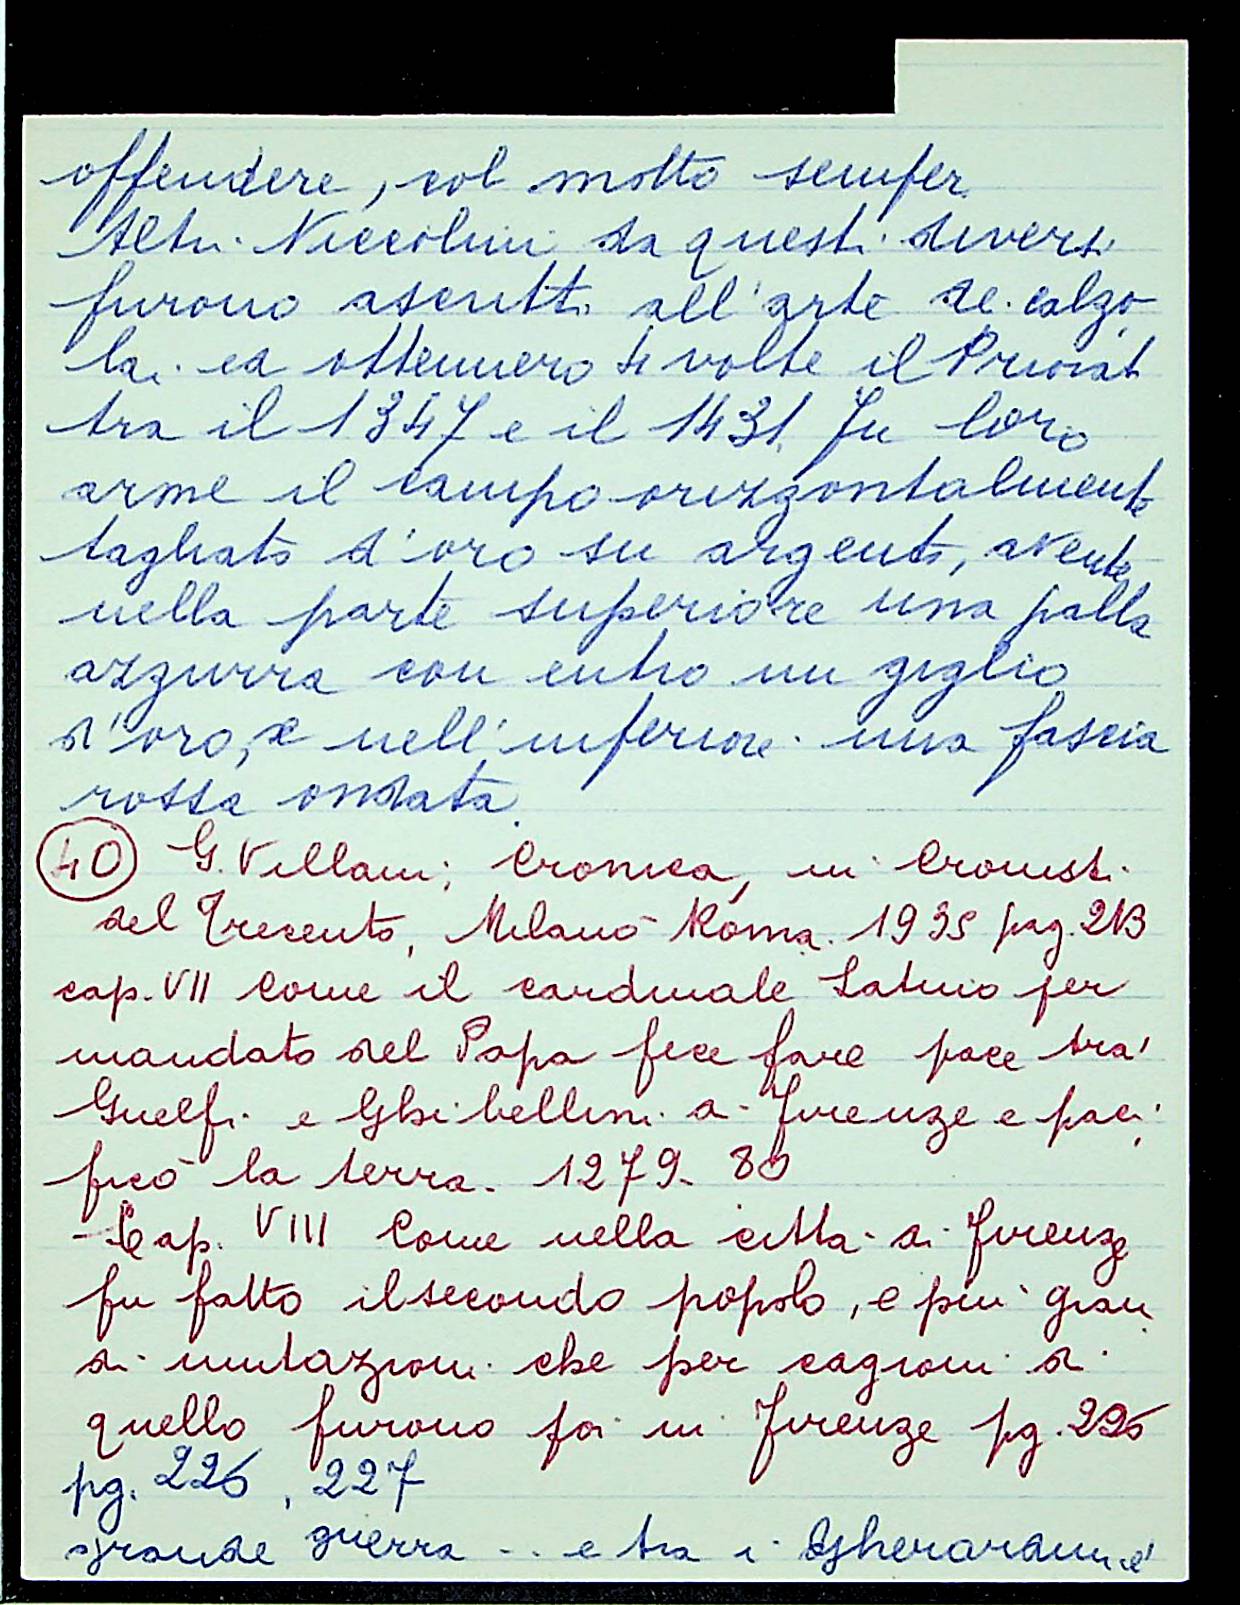 offendere, col motto semper
Altri Niccolini da questi diversi
furono ascritti all'arte de calzo
lai ed ottennero 4 volte il Priorat
tra il 1347 e il 1431. Fu loro
arme il campo orizzontalmente
tagliato d'oro su argento, avente
nella parte superiore una palla
azzurra con entro un giglio
d'oro, e nell'inferiore una fascia
rossa ondata.
40 G. Villani; Cronica, in Cronisti
del Trecento, Milano Roma. 1935 pag. 213
cap. VII Come il cardinale Latino per
mandato del Papa fece fare pace tra
Guelfi e Ghibellini a Firenze e paci
ficò la terra. 1279-80
- Cap. VIII Come nella città di Firenze
fu fatto il secondo popolo, e più gran
di mutazioni che per cagioni di
quello furono poi in Firenze pg. 226
pg. 226, 227
grande guerra... e tra i Gherardini e